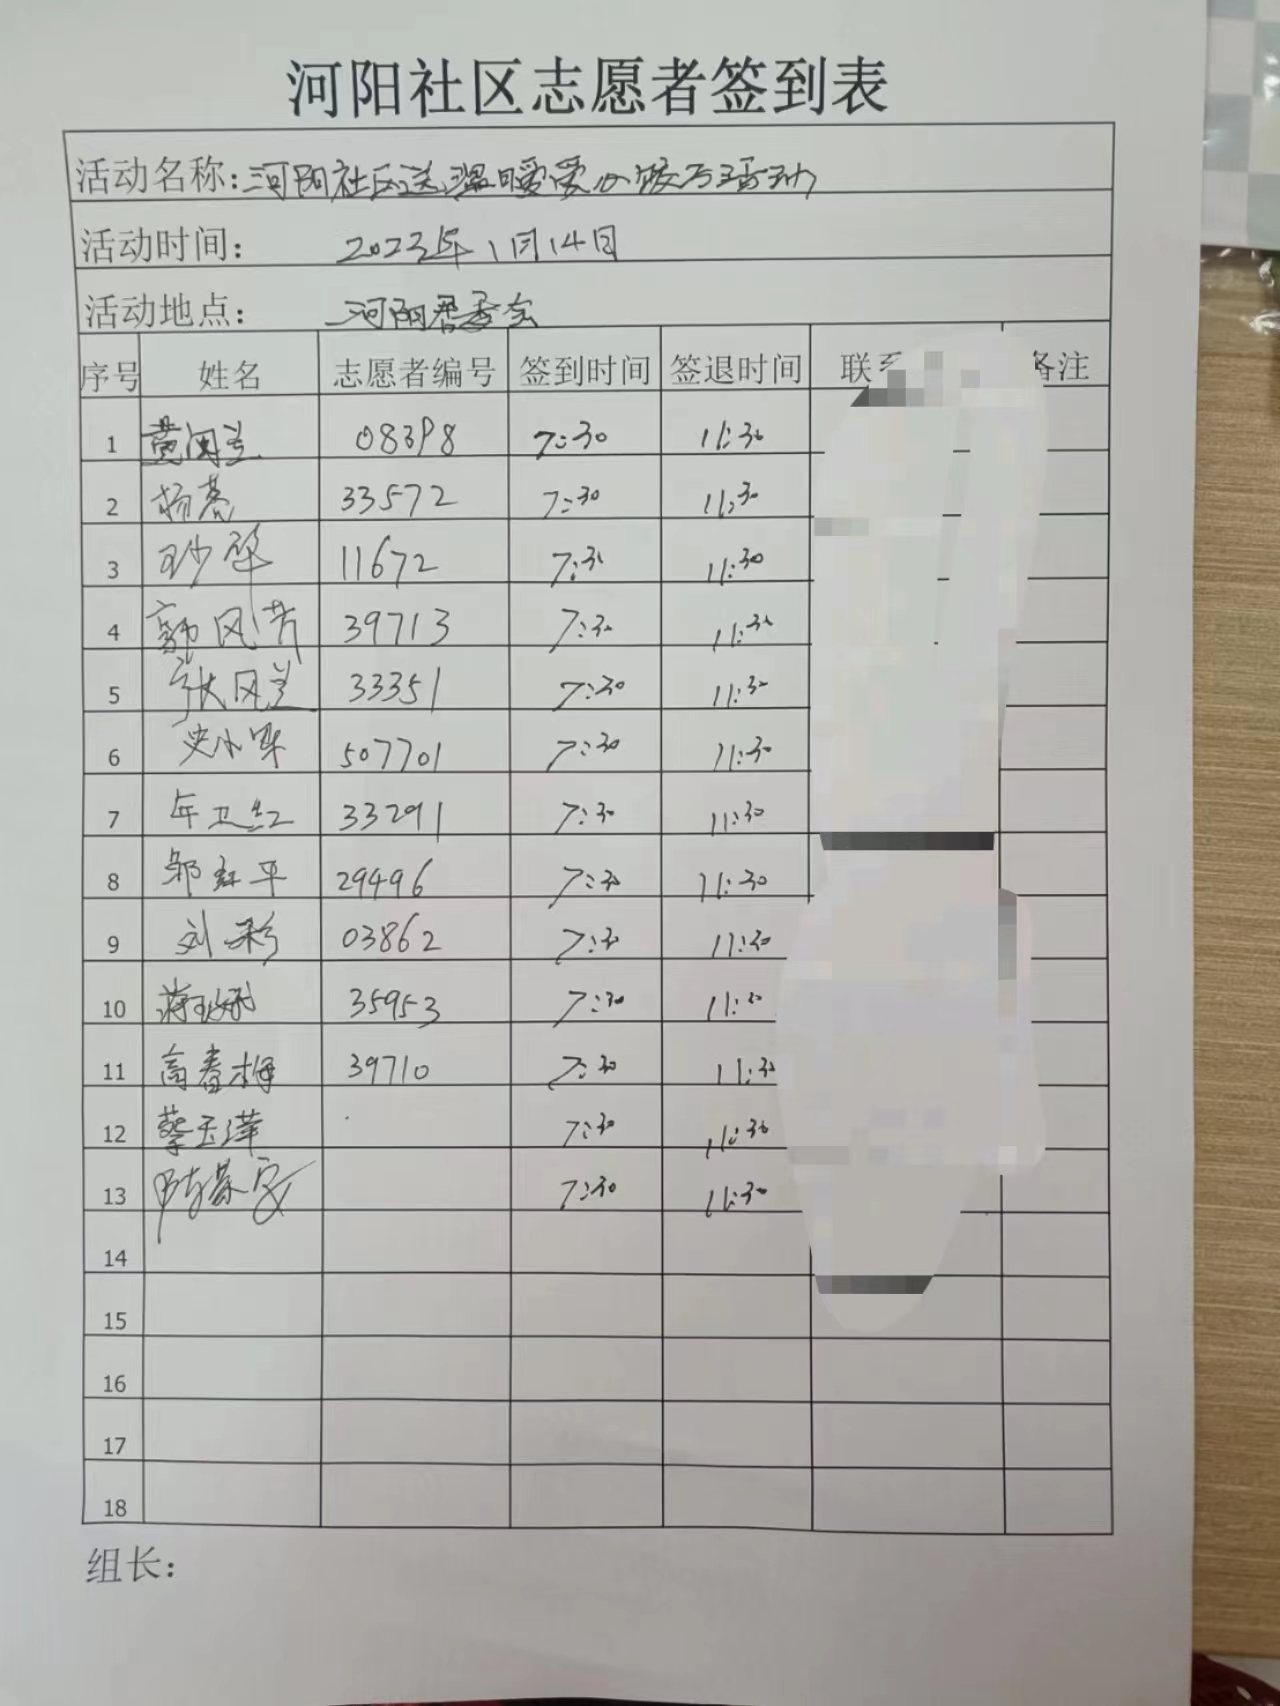 河阳社区志愿者签到表
活动名称:河阳社区送温暖爱心饺子活动
活动时间: 2023年1月14日
活动地点: 河阳居委会
序号 姓名 志愿者编号 签到时间 签退时间 联系 备注
1 黄闰兰 08398 7:30 11:30
2 杨亮 33572 7:30 11:30
3 11672 7:30 11:30
4 郭风芳 39713 7:30 11:30
5 张风兰 33351 7:30 11:30
6 史小 507701 7:30 11:30
7 年卫红 33291 7:30 11:30
8 邹红平 29496 7:30 11:30
9 刘彩 03862 7:30 11:30
10 蒋 35953 7:30 11:30
11 高春梅 39710 7:30 11:30
12 蔡玉萍 7:30 11:30
13 7:30 11:30
14
15
16
17
18
组长: